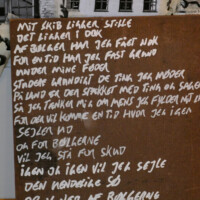 MIT SKIB LIGGER STILLE
DET LIGGER I DOK
AF BØLGER HAR JEG FÅET NOK
FOR EN TID HAR JEG FAST GRUND
UNDER MINE FØDDER
STUDERER GRUNDIGT DE TING JEG MØDER
PÅ LAND ER DER SPÆKKET MED TING OG SAGER
SÅ JEG TANKER MIG OM MENS JEG FYLDER MIT
FOR DER VIL KOMME EN TID HVOR JEG IGEN
SEJLER UD
OG FOR BØLGERNE
VIL JEG STÅ FOR SKUD
IGEN OG IGEN VIL JEG SEJLE
DEN UENDELIGE SØ
AF BØLGERNE